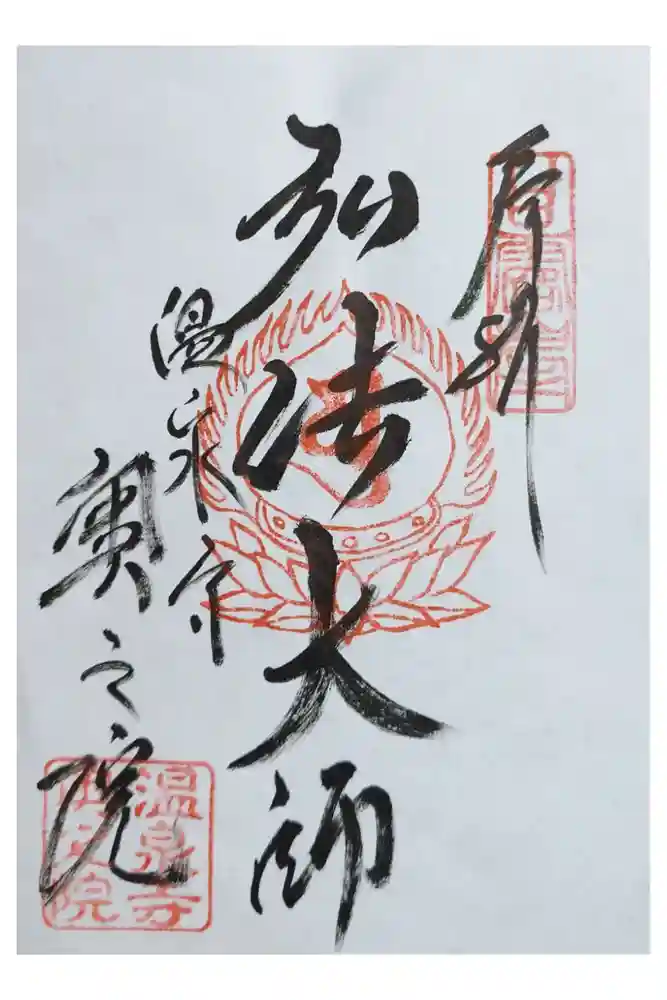 奉拝
弘法大師
温泉寺
奥之院
温泉寺